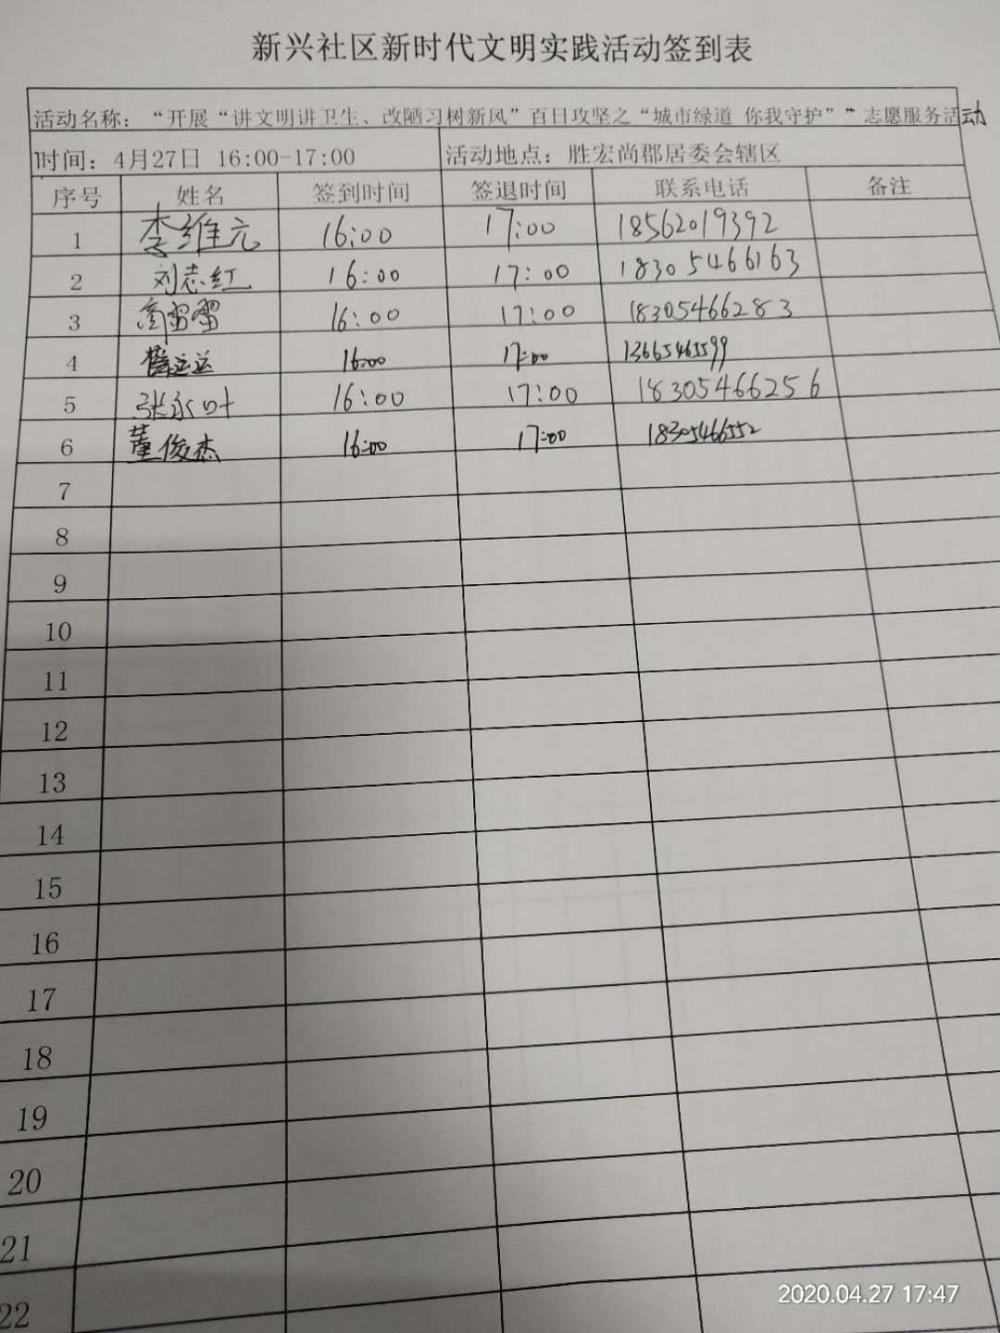 新兴社区新时代文明实践活动签到表
活动名称：“开展“讲文明讲卫生、改陋习树新风”百日攻坚之“城市绿道 你我守护””志愿服务活动
时间：4月27日 16:00-17:00 活动地点：胜宏尚郡居委会辖区
序号 姓名 签到时间 签退时间 联系电话 备注
1 李维元 16:00 17:00 18562019392
2 刘志红 16:00 17:00 18305466163
3 16:00 17:00 18305466283
4 16:00 17:00 13665465599
5 张永叶 16:00 17:00 18305466256
6 董俊杰 16:00 17:00 18305466552
7
8
9
10
11
12
13
14
15
16
17
18
19
20
21
22
2020.04.27 17:47